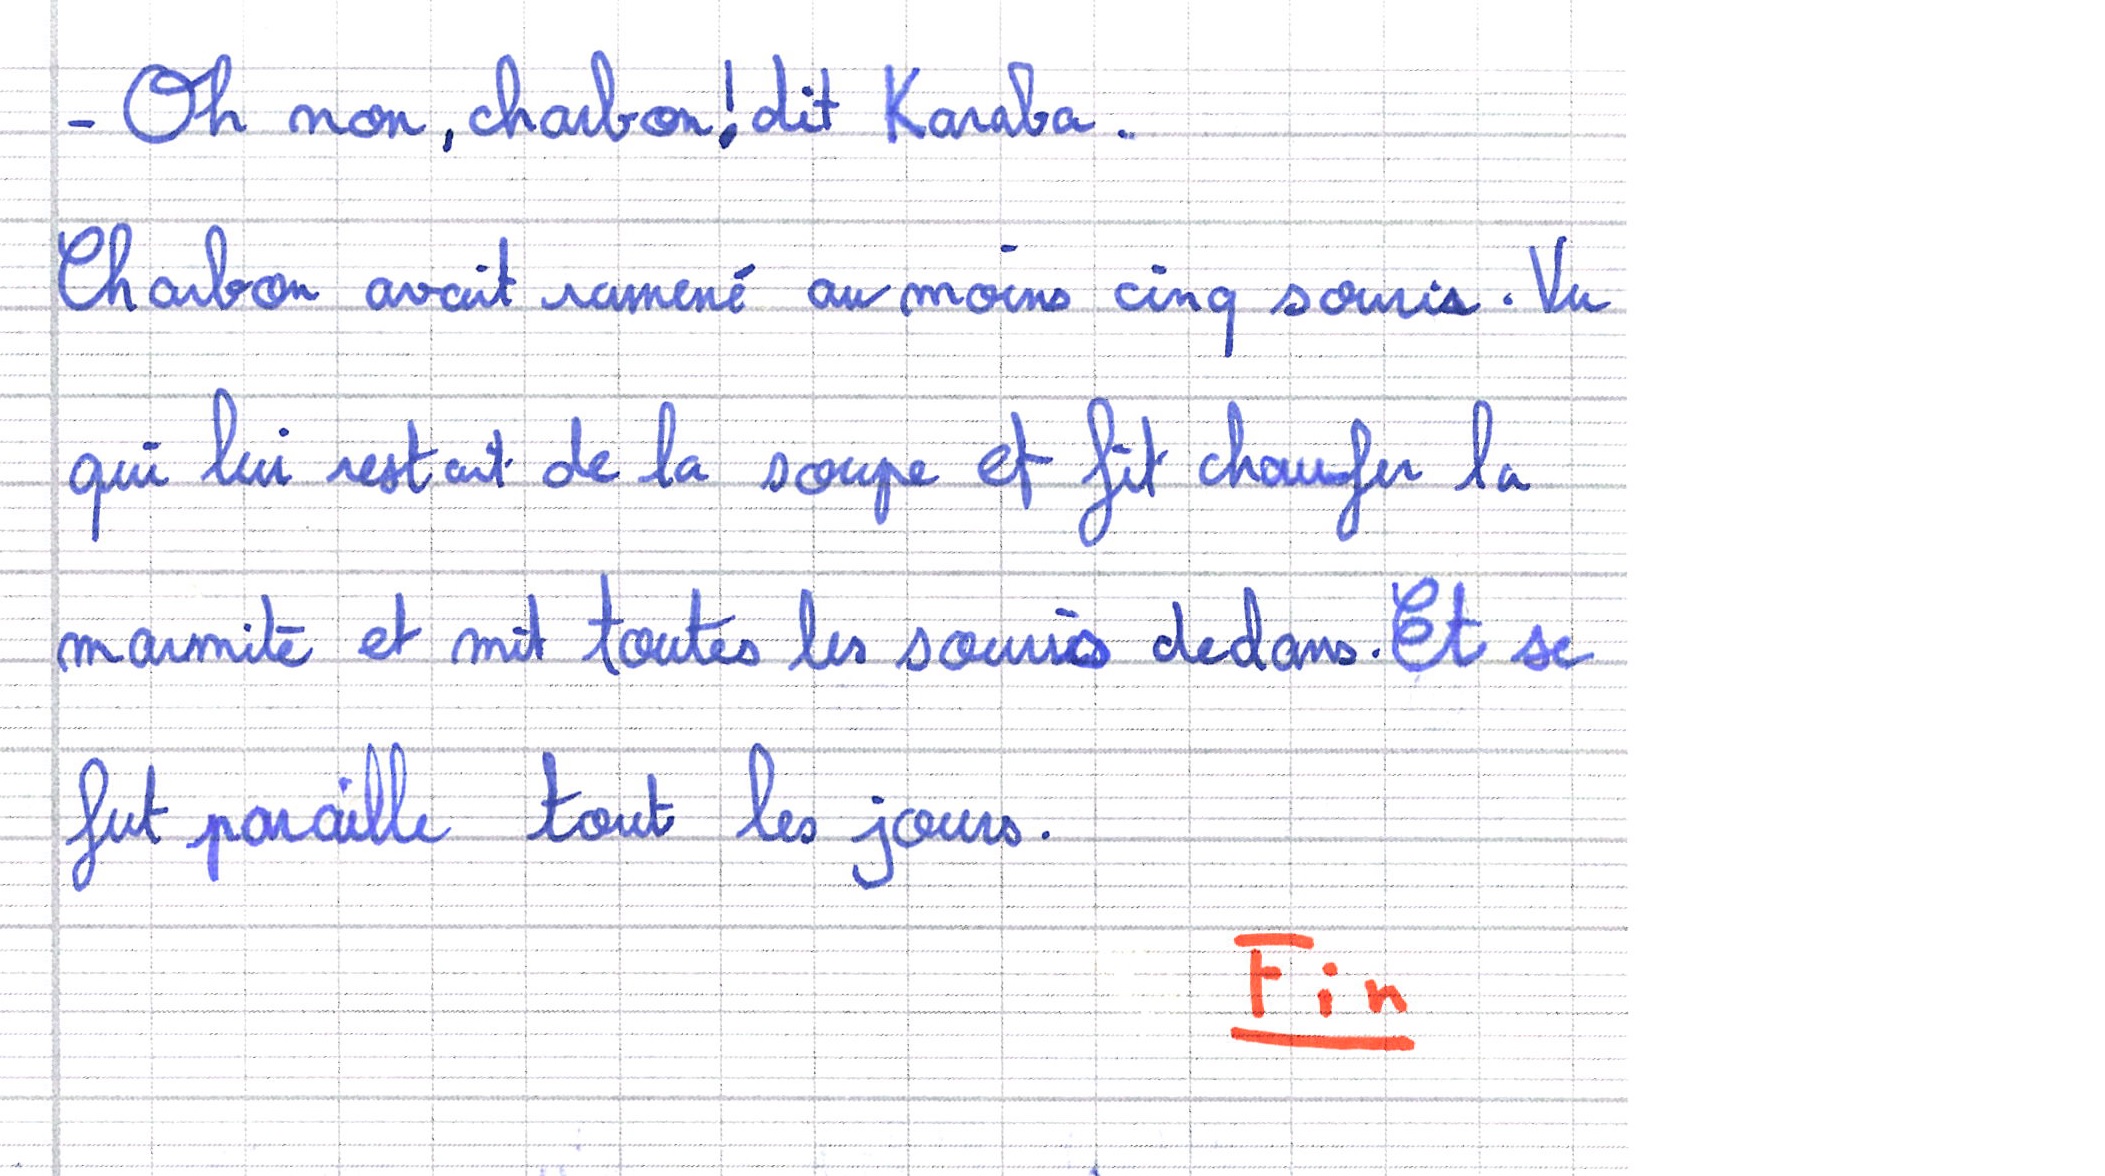 - Oh non, charbon! dit Karaba.
Charbon avait ramené au moins cinq souris. Vu
qui lui restait de la soupe et fit chaufer la
marmite et mit toutes les souris dedans. Et se
fut paraille tout les jours.
Fin